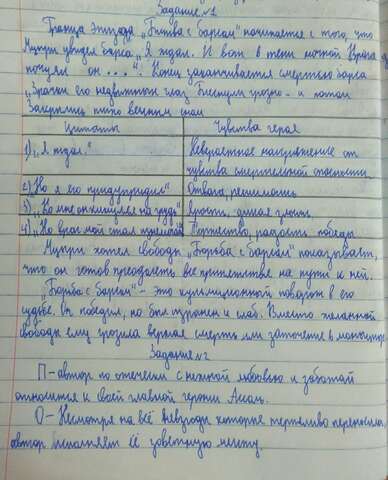 Задание №1
Граница эпизода „Битва с барсом" начинается с того, что
Мцыри увидел барса „Я ждал. И вот в тени ночной Врага
почуял он ...". Конец заканчивается смертью барса
„Зрачки его недвижных глаз Блеснули грозно - и потом
Закрылись тихо вечным сном
Цитаты Чувства героя
1) „Я ждал." Невероятное напряжение от
чувства смертельной опасности
2) „Но я его предупредил" Отвага, решимость
3) „Но мне он кинулся на грудь" Ярость,
4) Но враг мой стал Торжество, радость победы
Мцыри хотел свободы. „Борьба с барсом" показывает,
что он готов преодолеть все препятствия на пути к ней.
„Борьба с барсом" - это поворот в его
судьбе. Он победил, но был изранен и слаб. Вместо желанной
свободы ему грозила верная смерть или заточение в монастыре
Задание №2
П-автор по отечески с нежной любовью и заботой
относится к своей главной героини Ассоль.
О- Несмотря на всё невзгоды которые терпеливо переносила
автор исполняет её заветную мечту.